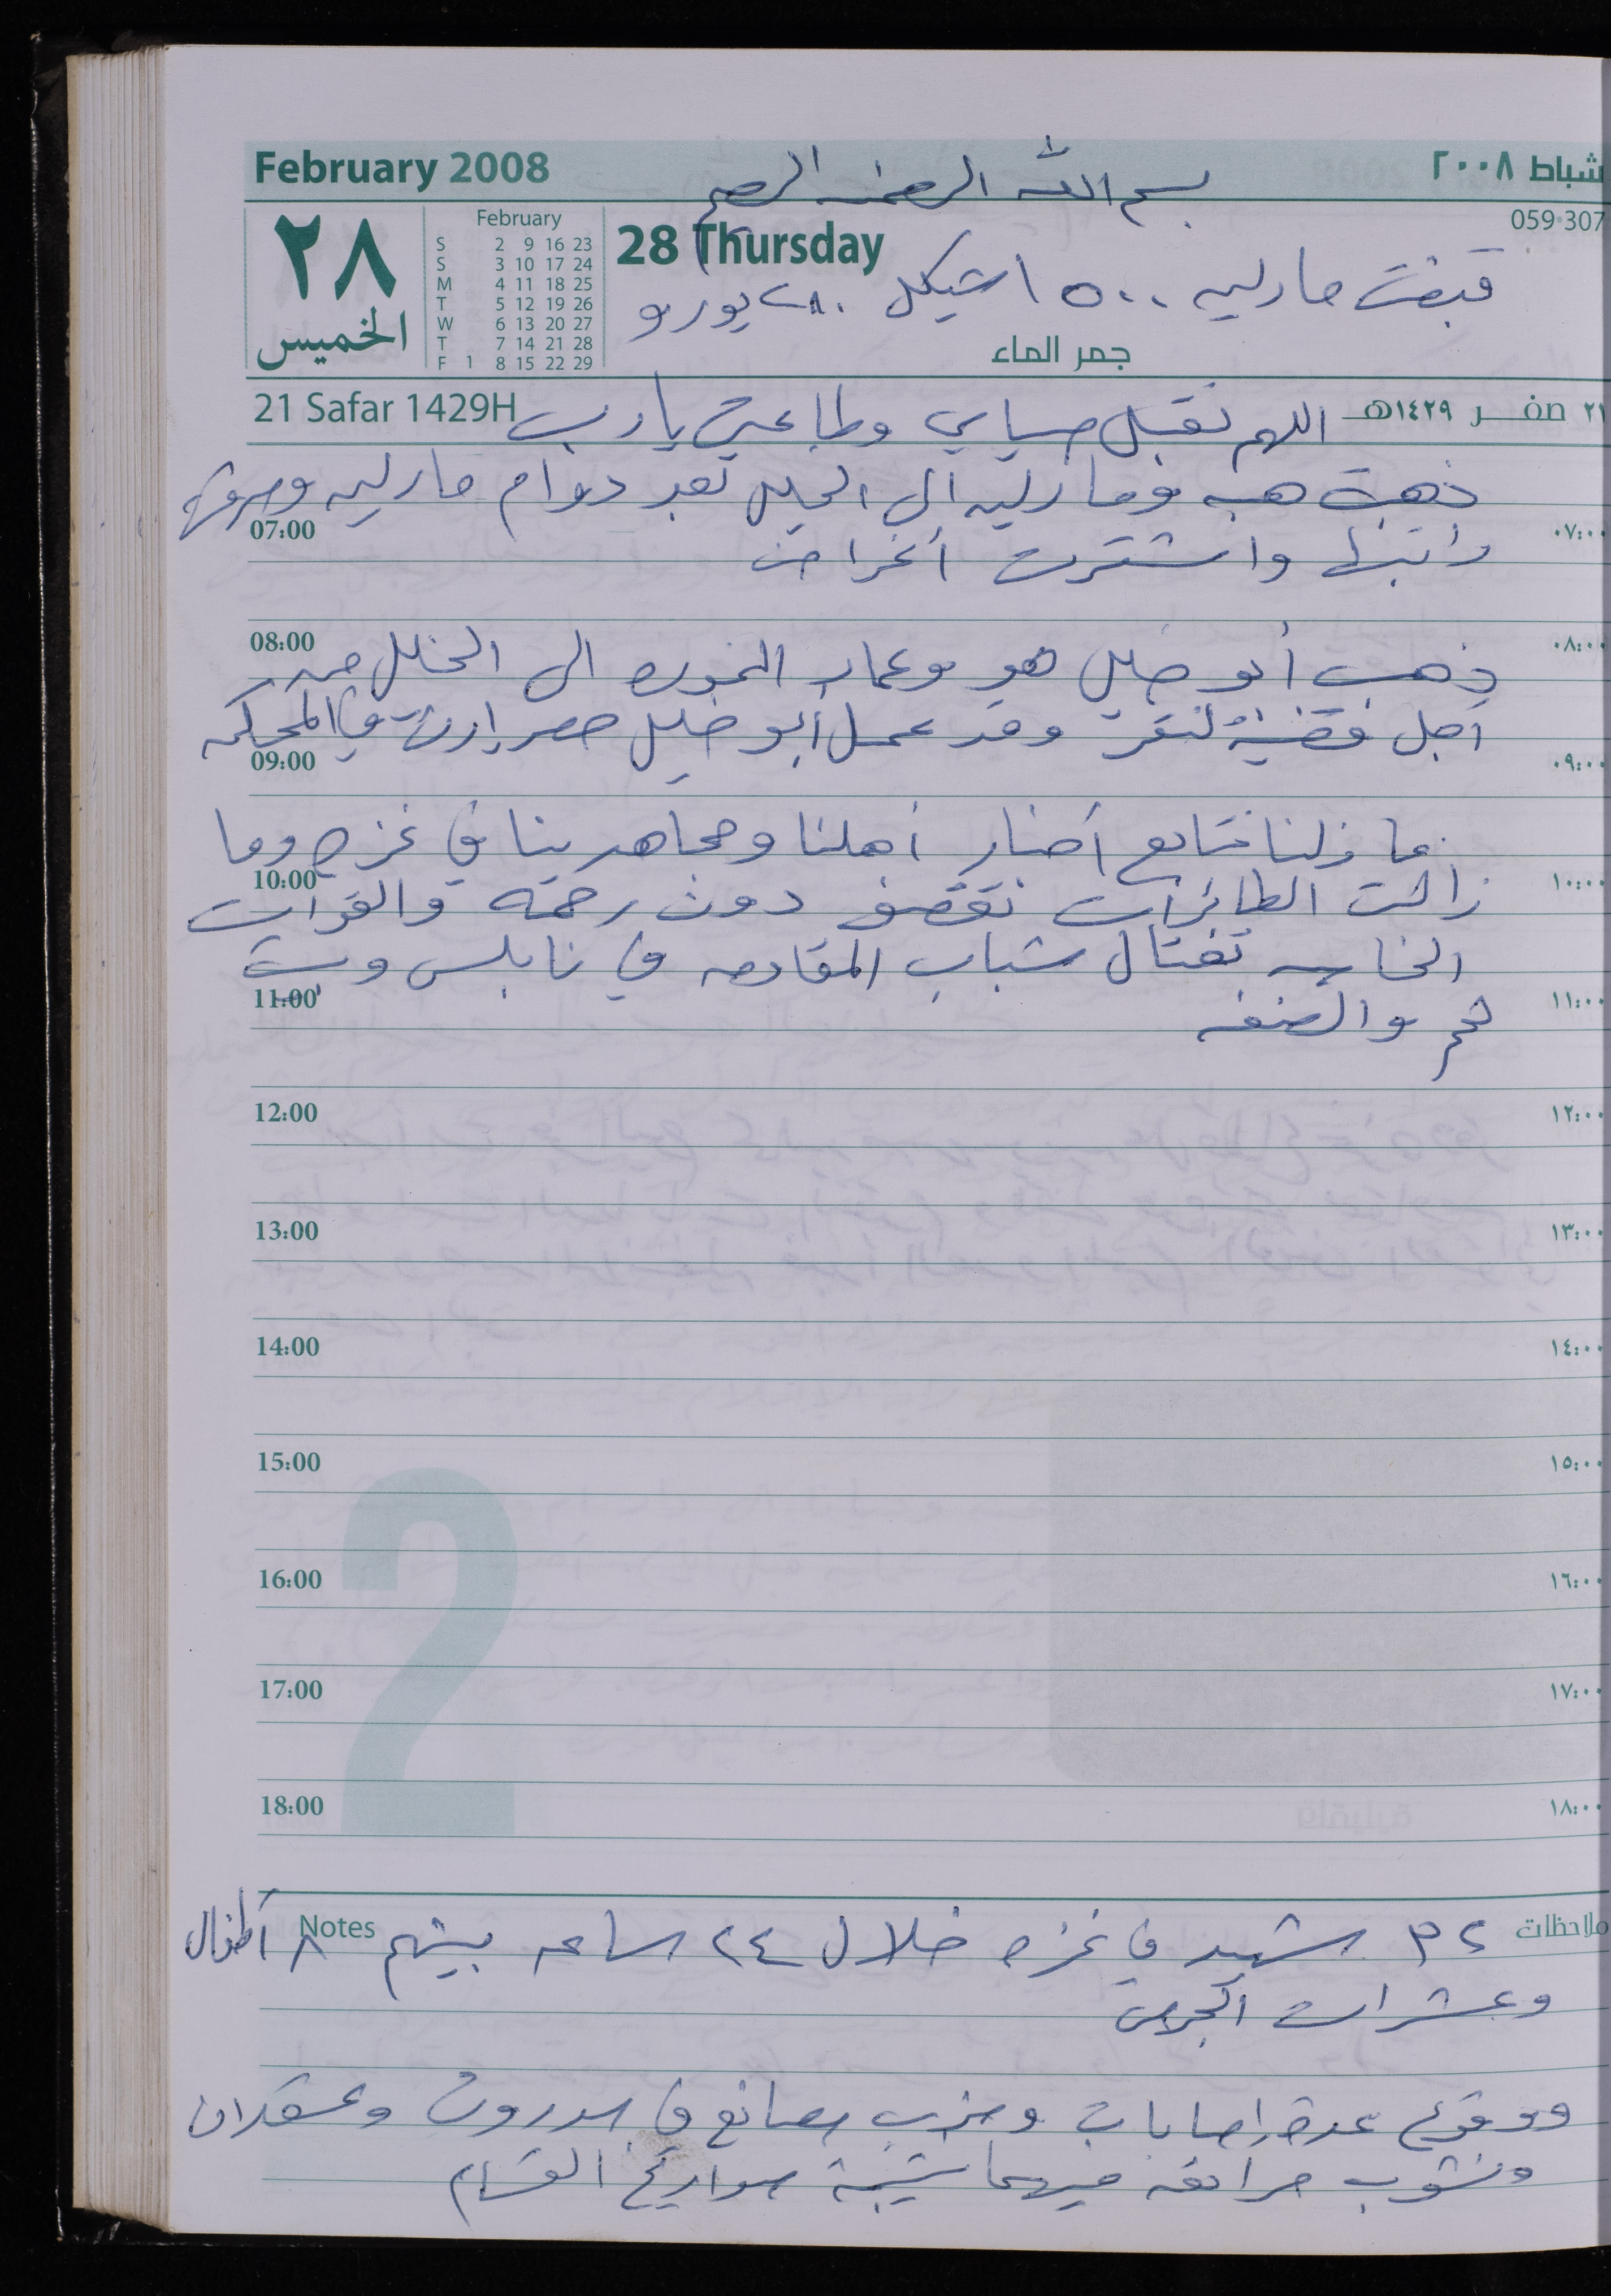 February 2008
بسم الله الرحمن الرحيم
شباط ٢٠٠٨
059-307
٢٨
الخميس
February
S 2 9 16 23
S 3 10 17 24
M 4 11 18 25
T 5 12 19 26
W 6 13 20 27
T 7 14 21 28
F 1 8 15 22 29
28 Thursday
قبضت مارلين ١٥٠٠ شيكل ٢٨٠ يورو
جمر الماء
21 Safar 1429H
٢١ صفر ١٤٢٩هـ
اللهم تقبل صيامي وطاعتي يا رب
ذهبت هبه ومارلين الى الخليل بعد دوام مارلين وصرفت
07:00 ٠٧:٠٠
راتبها واشترت أغراض
08:00 ٠٨:٠٠
ذهب أبو خليل هو وعماد الى الخليل من
أجل قضية وقد عمل أبو خليل حصر إرث في المحكمه
09:00 ٠٩:٠٠
ما زلنا نتابع أخبار أهلنا ومجاهدينا في غزه وما
10:00 ١٠:٠٠
زالت الطائرات تقصف دون رحمه والقوات
الخاصه تغتال شباب المقاومه في نابلس وبيت
11:00 ١١:٠٠
لحم والضفه
12:00 ١٢:٠٠
13:00 ١٣:٠٠
14:00 ١٤:٠٠
15:00 ١٥:٠٠
16:00 ١٦:٠٠
17:00 ١٧:٠٠
18:00 ١٨:٠٠
2
Notes ملاحظات
٣٢ شهيد في غزه خلال ٢٤ ساعه بينهم ٨ أطفال
وعشرات الجرحى
ووقوع عدة إصابات وضرب مصانع في سدروت وعسقلان
ونشوب حرائق فيهما نتيجة صواريخ القسام